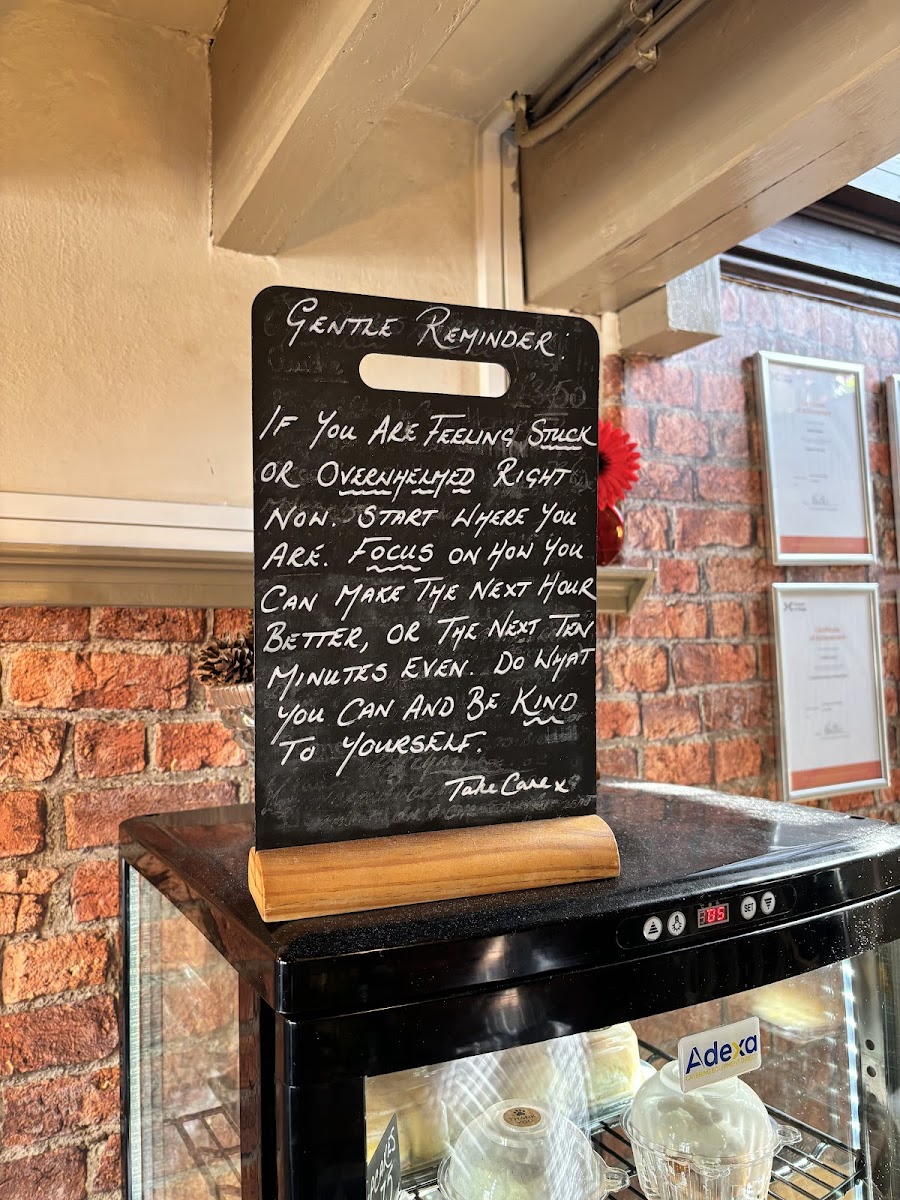 GENTLE REMINDER:
£3.50
IF YOU ARE FEELING STUCK
OR OVERWHELMED RIGHT
NOW. START WHERE YOU
ARE. FOCUS ON HOW YOU
CAN MAKE THE NEXT HOUR
BETTER, OR THE NEXT TEN
MINUTES EVEN. DO WHAT
YOU CAN AND BE KIND
TO YOURSELF.
Take Care x
05
SET
Adexa
THANK YOU